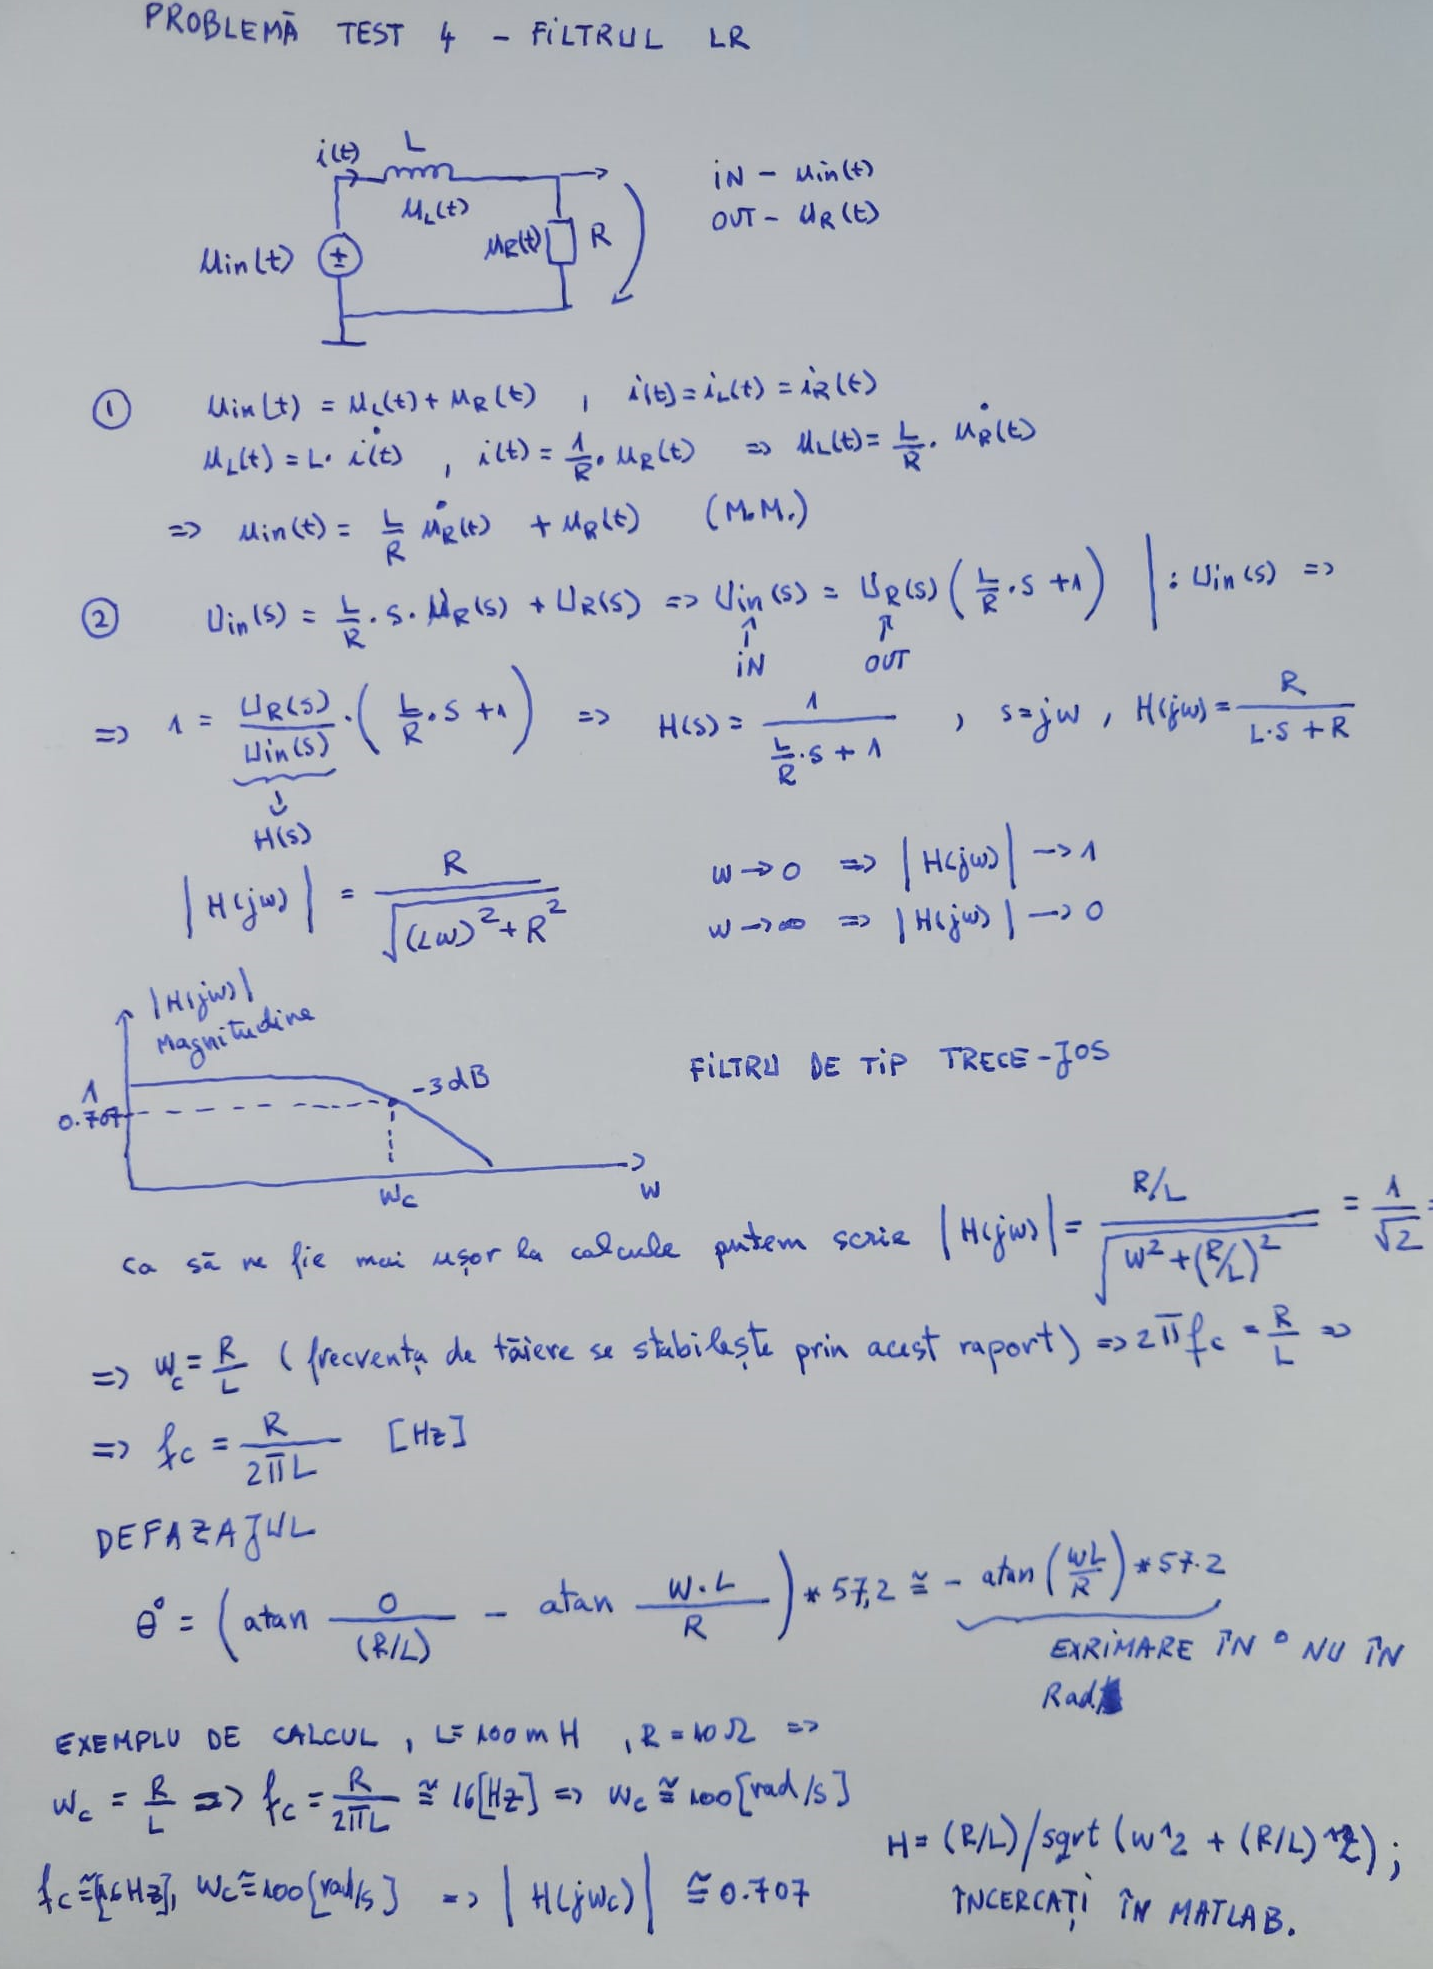 PROBLEMĂ TEST 4 - FILTRUL LR
i(t) L
uL(t)
uin(t) ± uR(t) R
IN - uin(t)
OUT - uR(t)
① uin(t) = uL(t) + uR(t) , i(t) = iL(t) = iR(t)
uL(t) = L · i̇(t) , i(t) = 1/R · uR(t) => uL(t) = L/R · u̇R(t)
=> uin(t) = L/R u̇R(t) + uR(t) (M.M.)
② Uin(s) = L/R · s · UR(s) + UR(s) => Uin(s) = UR(s) ( L/R · s + 1 ) | : Uin(s) =>
↑ IN ↑ OUT
=> 1 = UR(s)/Uin(s) · ( L/R · s + 1 ) => H(s) = 1/(L/R · s + 1) , s = jw , H(jw) = R/(L·s + R)
H(s)
|H(jw)| = R/√((Lw)² + R²)
w → 0 => |H(jw)| → 1
w → ∞ => |H(jw)| → 0
|H(jw)|
Magnitudine
1
0.707
-3dB
wc
w
FILTRU DE TIP TRECE-JOS
Ca să ne fie mai ușor la calcule putem scrie |H(jw)| = (R/L)/√(w² + (R/L)²) = 1/√2 =
=> wc = R/L (frecvența de tăiere se stabilește prin acest raport) => 2πfc = R/L =>
=> fc = R/(2πL) [Hz]
DEFAZAJUL
θ° = ( atan 0/(R/L) - atan w·L/R ) * 57,2 ≅ - atan (wL/R) * 57.2
EXRIMARE ÎN ° NU ÎN
Rad.
EXEMPLU DE CALCUL , L = 100 mH , R = 10 Ω =>
wc = R/L => fc = R/(2πL) ≅ 16[Hz] => wc ≅ 100 [rad/s]
fc ≅ [16Hz], wc ≅ 100 [rad/s] => |H(jwc)| ≅ 0.707
H = (R/L)/sqrt(w^2 + (R/L)^2);
ÎNCERCAȚI ÎN MATLAB.